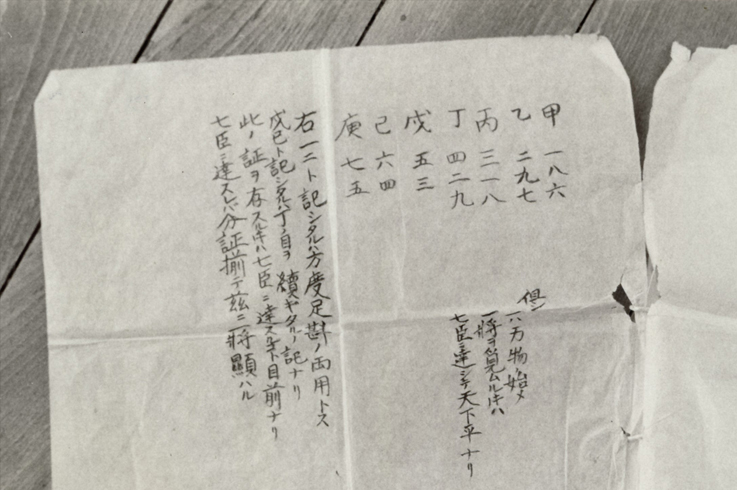 甲 一八六
乙 二九七
丙 三一八
丁 四二九
戊 五三
己 六四
庚 七五
但シ
一六万物ノ始メ
一将ヲ見ムルキハ
七臣ニ達シテ天下平ナリ
右一二ト記シタルハ方度足斟ノ両用トス
戊己ト記シタルハ丁ノ目ヲ續キタルノ記ナリ
此ノ証ヲ存スルキハ七臣ニ達スル目前ナリ
七臣ニ達スレバ分証揃テ茲ニ一将顯ハル